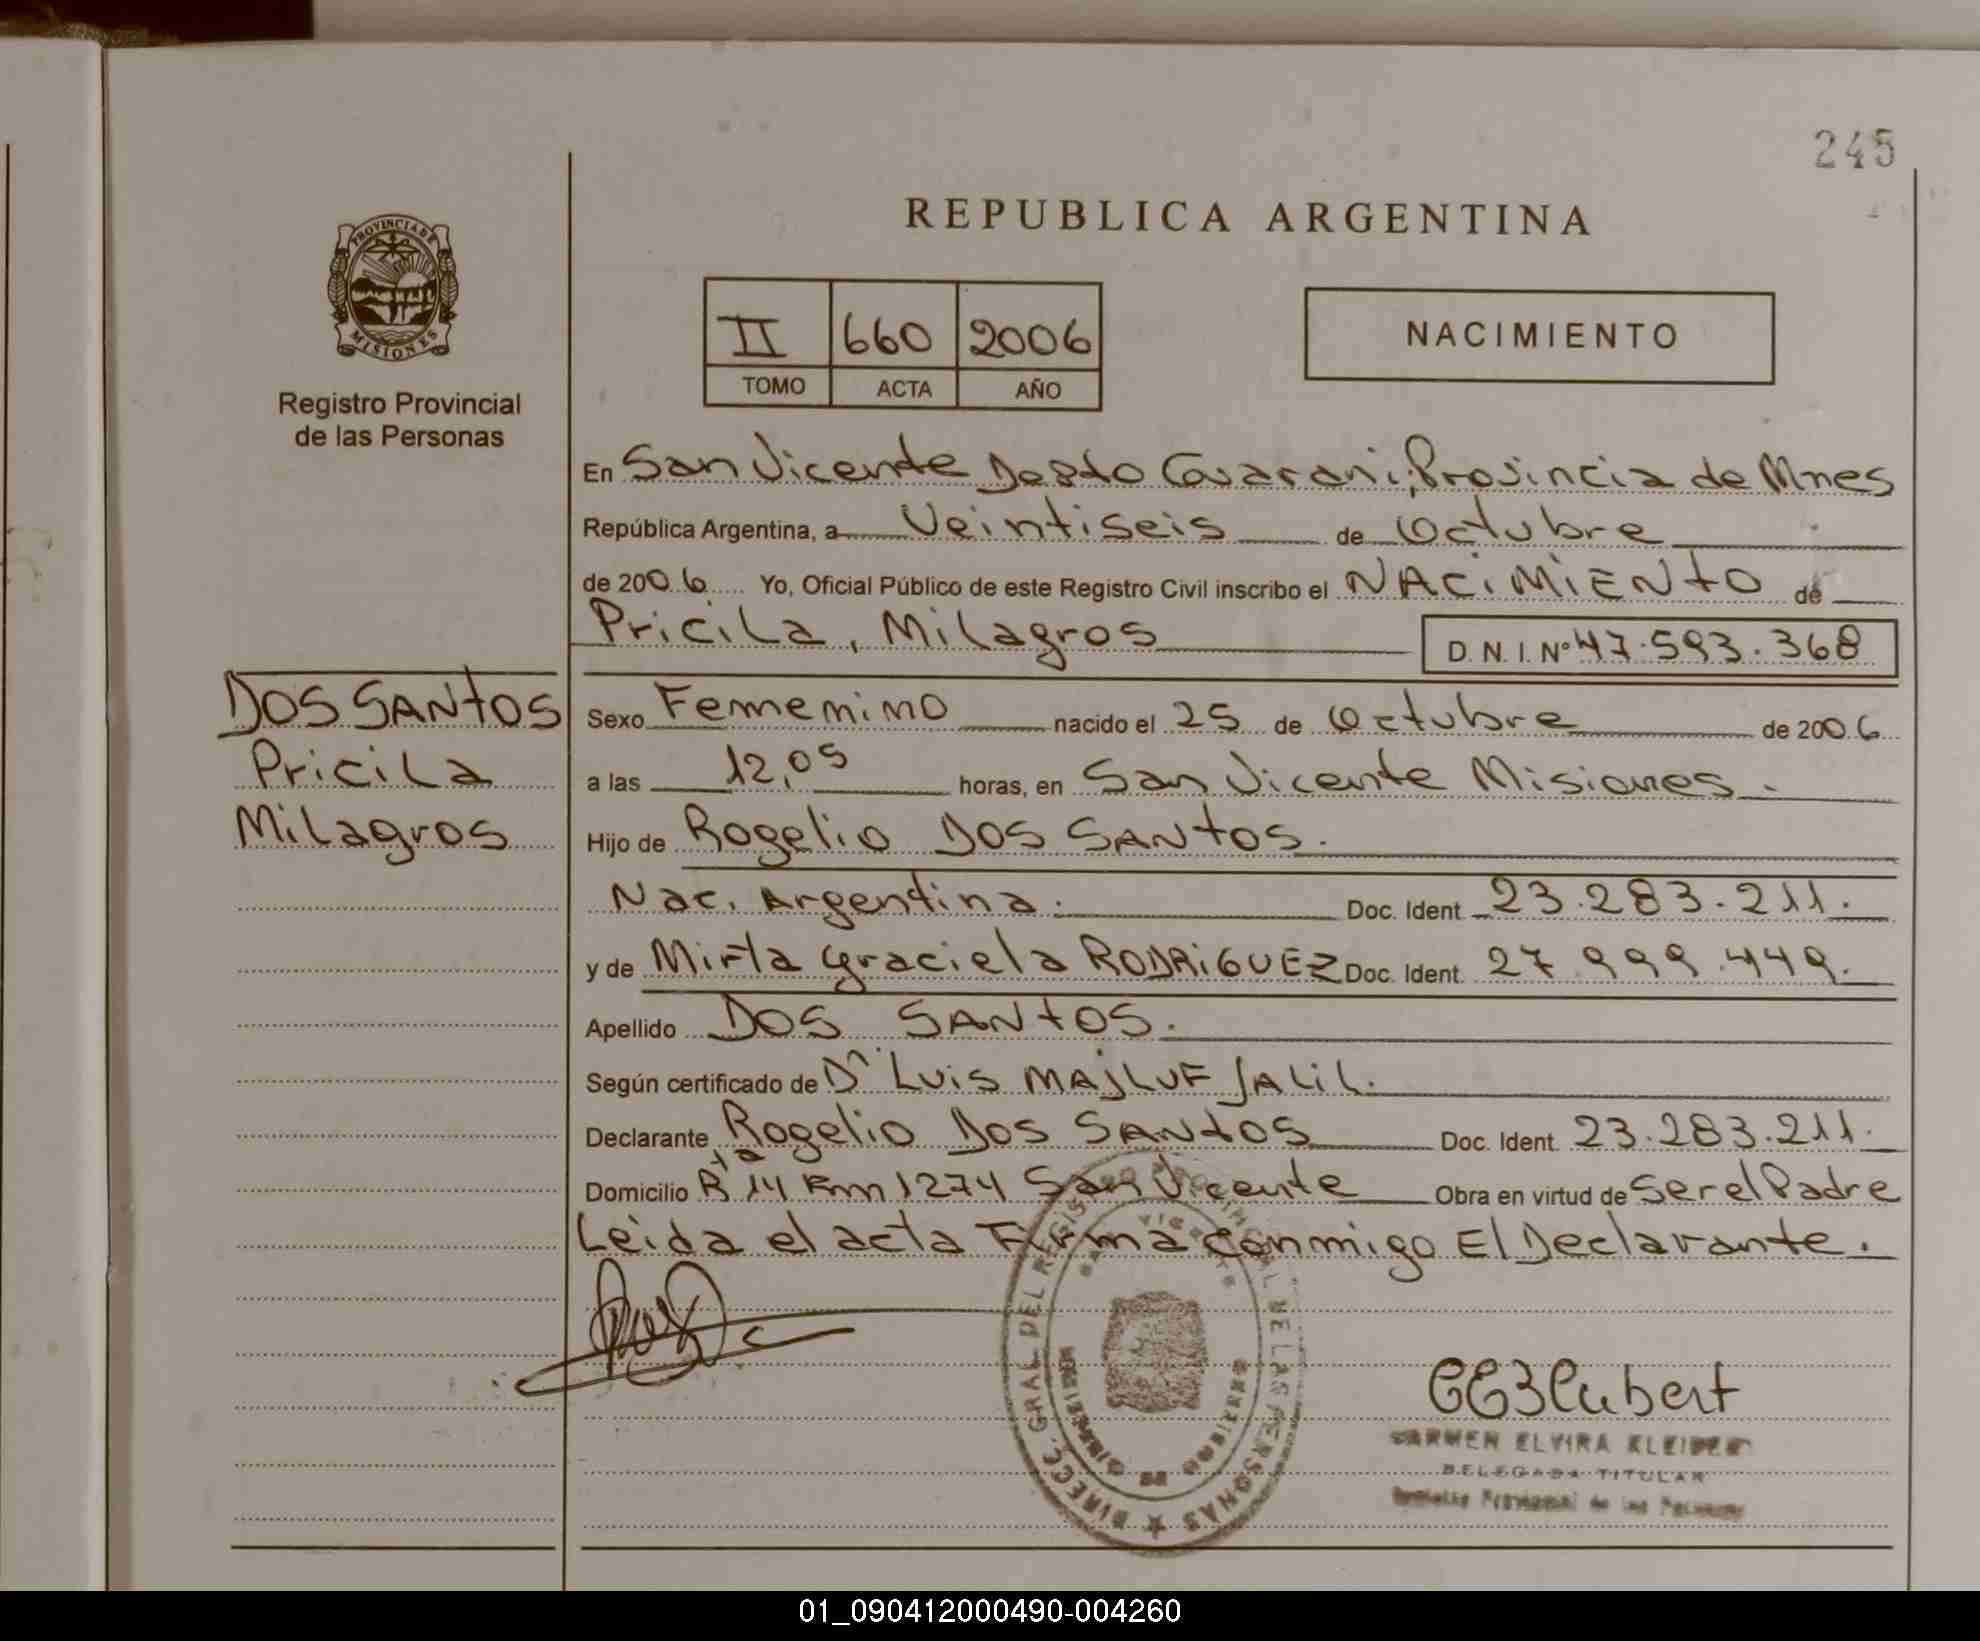 245
REPUBLICA ARGENTINA
PROVINCIA DE
MISIONES
Registro Provincial
de las Personas
II 660 2006
TOMO ACTA AÑO
NACIMIENTO
En San Vicente Depto Guarani, Provincia de Mnes
República Argentina, a Veintiseis de Octubre
de 2006 Yo, Oficial Público de este Registro Civil inscribo el NACIMIENTO de
Pricila, Milagros
D. N. I. Nº 47.593.368
DOS SANTOS
Pricila
Milagros
Sexo Femenino nacido el 25 de Octubre de 2006
a las 12,05 horas, en San Vicente Misiones.
Hijo de Rogelio DOS SANTOS.
Nac. Argentina. Doc. Ident. 23.283.211.
y de Mirta Graciela RODRIGUEZ Doc. Ident. 27.999.449.
Apellido DOS SANTOS.
Según certificado de Dr Luis MAJLUF JALIL.
Declarante Rogelio DOS SANTOS Doc. Ident. 23.283.211.
Domicilio Rta 14 Km 1274 San Vicente Obra en virtud de Ser el Padre
Leida el acta Firma conmigo El Declarante.
DIRECC. GRAL. DEL REGISTRO PROVINCIAL DE LAS PERSONAS
CARMEN ELVIRA
DELEGADA TITULAR
Registro Provincial de las Personas
01_090412000490-004260